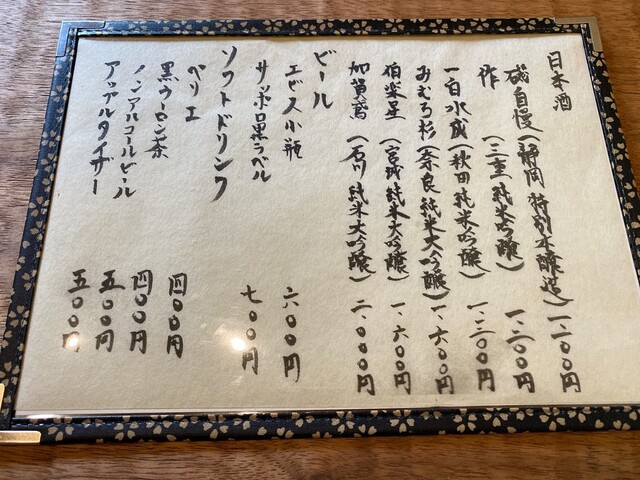 日本酒
磯自慢(静岡 特別本醸造)一、二〇〇円
作(三重 純米吟醸)一、二〇〇円
一白水成(秋田 純米吟醸)一、二〇〇円
みむろ杉(奈良 純米大吟醸)一、六〇〇円
伯楽星(宮城 純米大吟醸)一、六〇〇円
加賀鳶(石川 純米大吟醸)二、〇〇〇円
ビール
エビス小瓶 六〇〇円
サッポロ黒ラベル 七〇〇円
ソフトドリンク
ペリエ 四〇〇円
黒ウーロン茶 四〇〇円
ノンアルコールビール 五〇〇円
アップルタイザー 五〇〇円